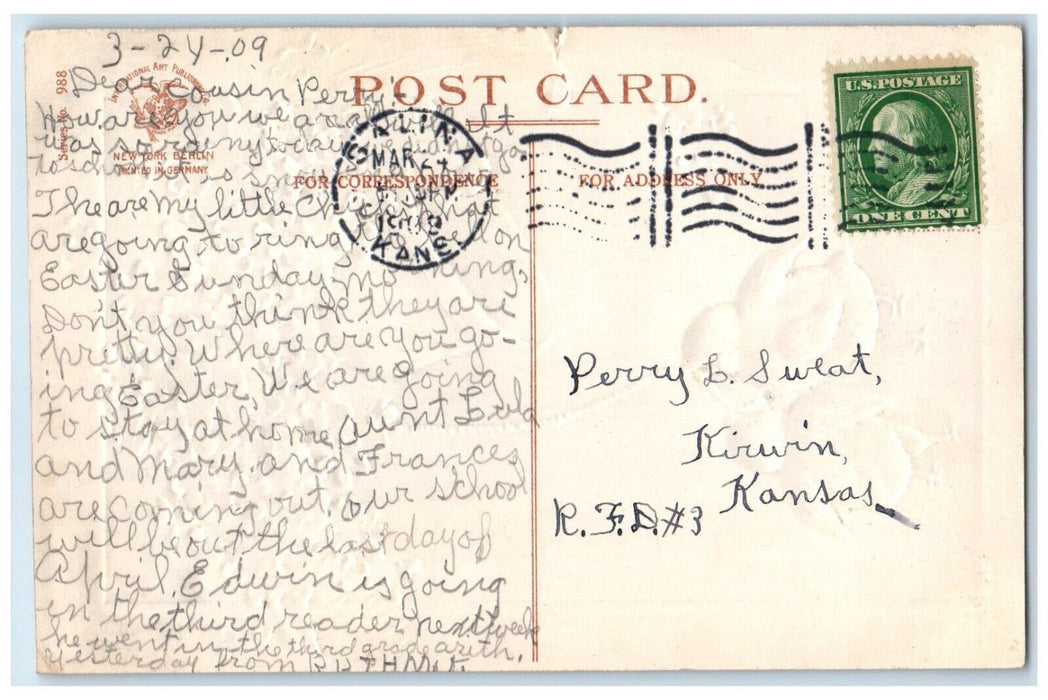 3-24-09
Dear Cousin Perry-
How are you we are all well. It
was so
to school
The are my little Chicks that
are going to ring the bell on
Easter Sunday morning,
Don't you think they are
pretty. Where are you go-
ing Easter, We are going
to stay at home, Aunt Lula
and Mary and Frances
are coming out. our school
will be out the last day of
April. Edwin is going
in the third reader next week
he went in the third grade arith.
yesterday from RUTH M. F.
Series No. 988
INTERNATIONAL ART PUBLISHING CO.
NEW YORK BERLIN
PRINTED IN GERMANY
POST CARD.
FOR CORRESPONDENCE
FOR ADDRESS ONLY
SALINA
MAR 24
KANS.
U.S. POSTAGE
ONE CENT
Perry L. Sweat,
Kirwin,
Kansas
R.F.D.#3